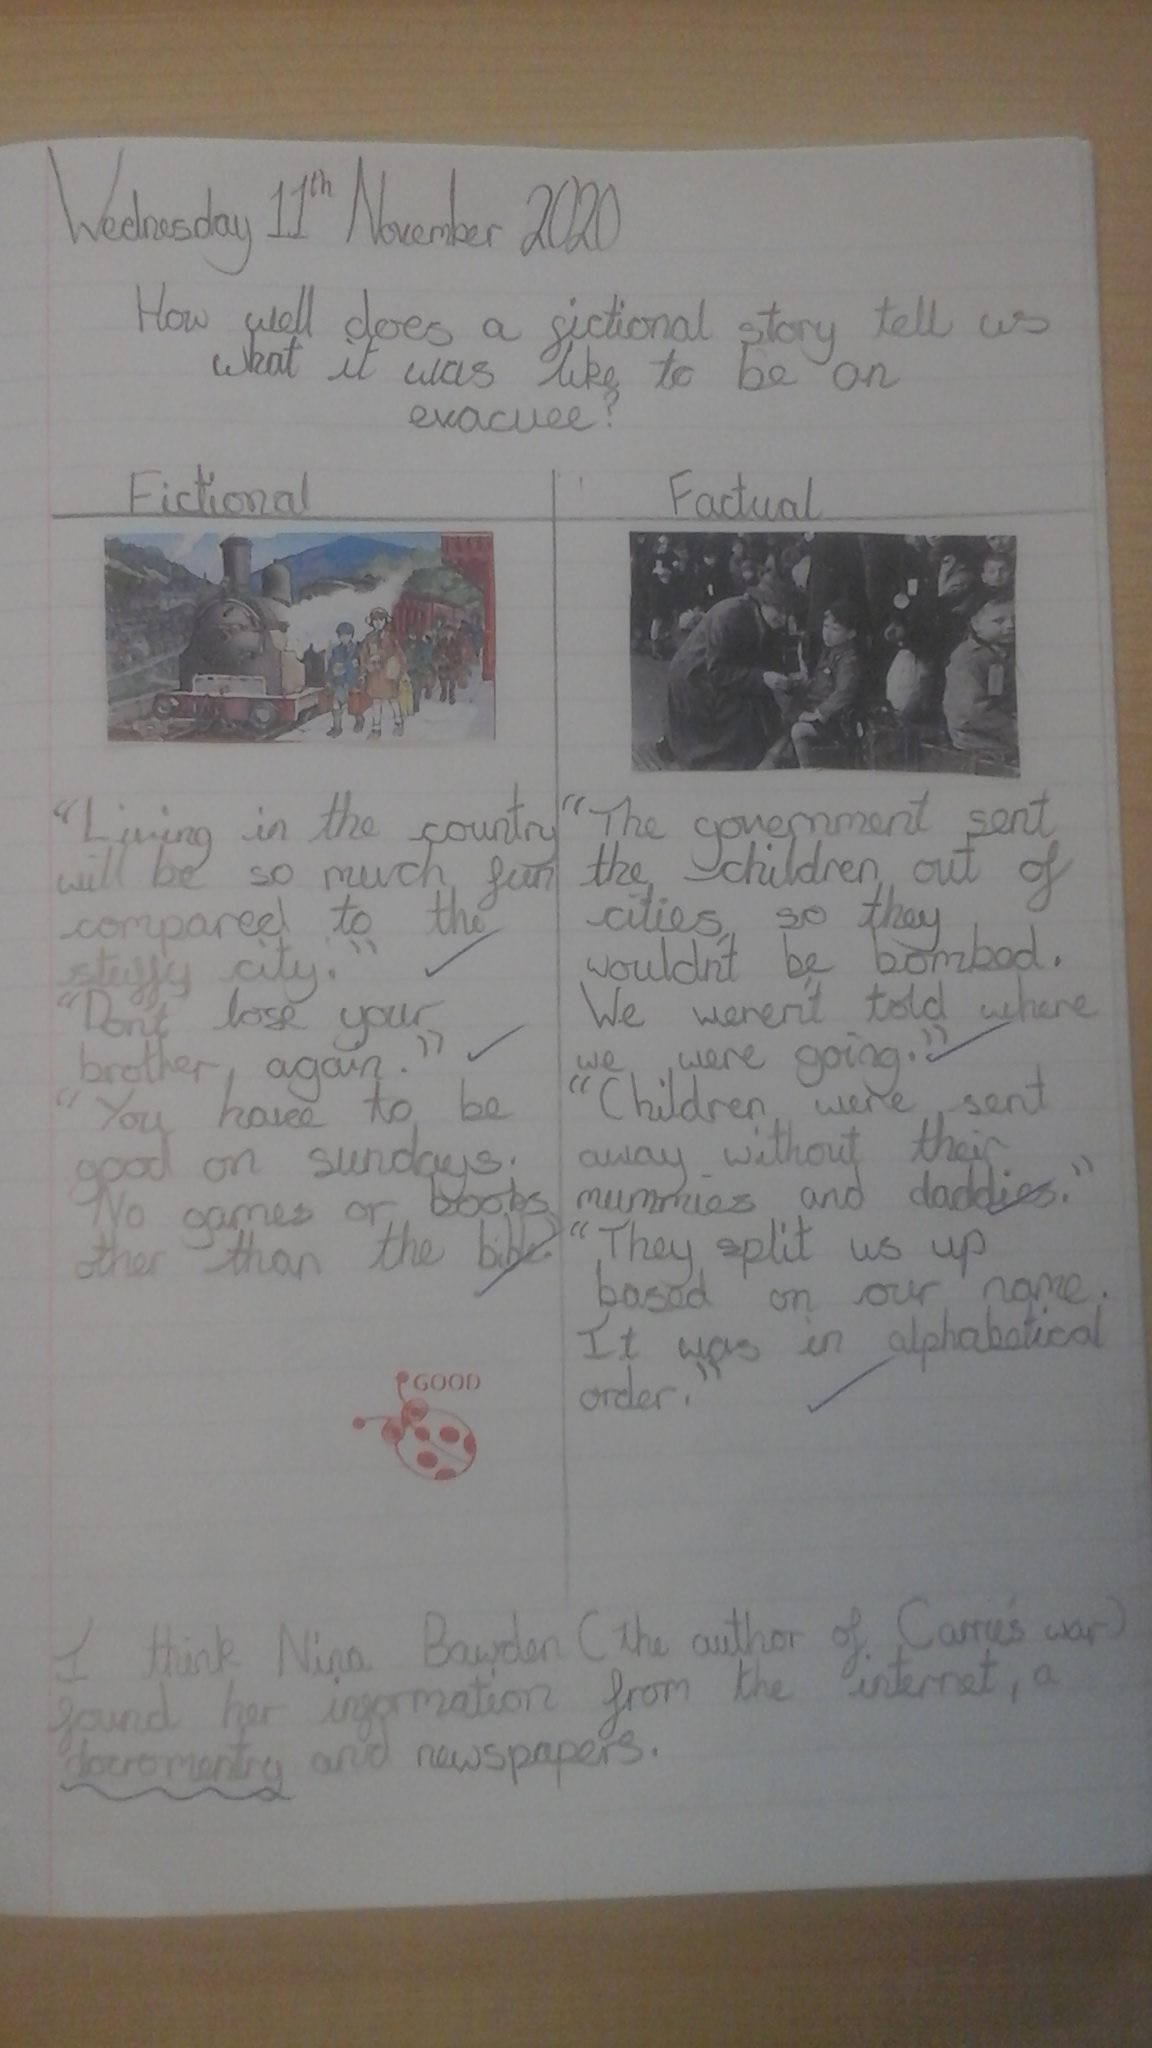 Wednesday 11th November 2020
How well does a fictional story tell us
what it was like to be an
evacuee?
Fictional
"Living in the country
will be so much fun
compared to the
stuffy city."
"Don't lose your
brother, again."
"You have to be
good on sundays.
No games or books
other than the bible.
GOOD
Factual
"The government sent
the children out of
cities, so they
wouldn't be bombed.
We weren't told where
we were going."
"Children were sent
away without their
mummies and daddies."
"They split us up
based on our name.
It was in alphabetical
order."
I think Nina Bawden (the author of Carrie's war)
found her information from the internet, a
docromentry and newspapers.